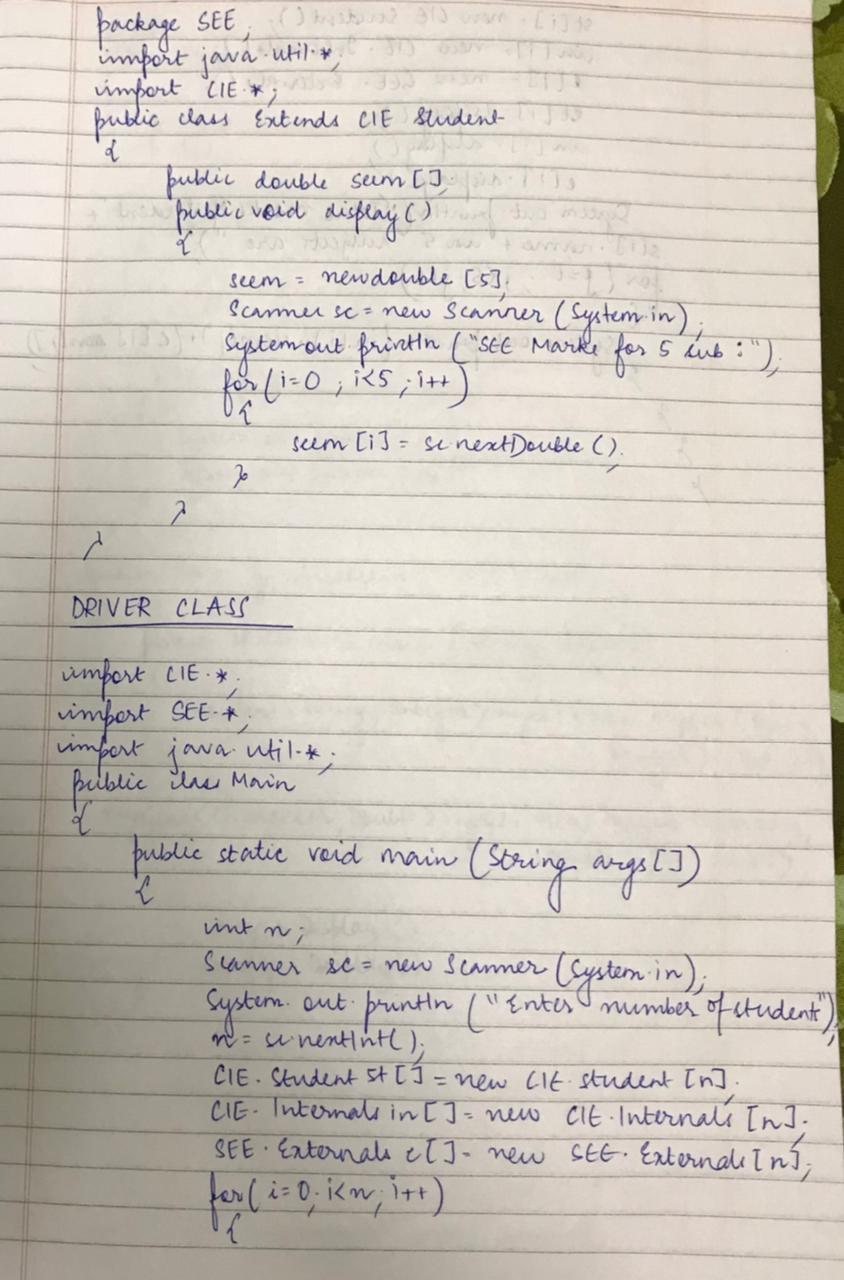 package SEE;
import java.util.*;
import CIE.*;
public class Extends CIE Student
{
public double seem[];
public void display()
{
seem = new double [5];
Scanner sc = new Scanner (System.in);
System.out.println ("SEE Marks for 5 sub :");
for(i=0 ; i<5 ; i++)
{
seem [i] = sc.nextDouble ();
}
}
}
DRIVER CLASS
import CIE.*;
import SEE.*;
import java.util.*;
public class Main
{
public static void main (String args[])
{
int n;
Scanner sc = new Scanner (System.in);
System.out.println ("Enter number of student");
n = sc.nextInt();
CIE.Student st [] = new CIE.student [n];
CIE.Internals in [] = new CIE.Internals [n];
SEE.Externals e[] = new SEE.Externals [n];
for( i=0; i<n; i++)
{